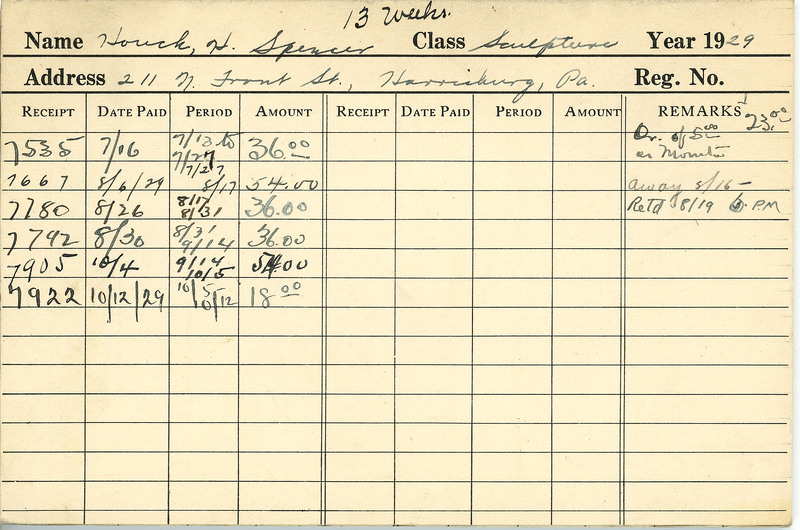 13 Weeks.
Name Houck, H. Spencer Class Sculpture Year 1929
Address 211 N. Front St., Harrisburg, Pa. Reg. No.
RECEIPT DATE PAID PERIOD AMOUNT RECEIPT DATE PAID PERIOD AMOUNT REMARKS 23.00
7535 7/16 7/13 to 7/27 36.00 of 5.00
7/27 as Monitor
7667 8/6/29 8/17 54.00 away 8/16 -
7780 8/26 8/17 8/31 36.00 Retd 8/19 6 P.M
7792 8/30 8/31 9/14 36.00
7905 10/4 9/14 10/5 54.00
7922 10/12/29 10/5 10/12 18.00